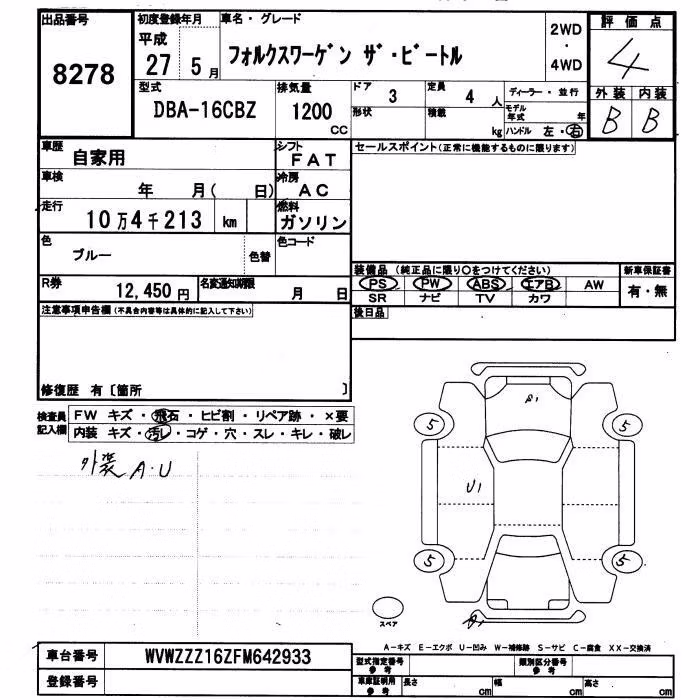 出品番号
8278
初度登録年月
平成
27 5月
車名・グレード
フォルクスワーゲン ザ・ビートル
2WD
・
4WD
評価点
4
外装 内装
B B
型式
DBA-16CBZ
排気量
1200
CC
ドア 3
定員 4 人
形状
積載 kg
ディーラー・並行
モデル年式 年
ハンドル 左・右
車歴
自家用
シフト
FAT
セールスポイント(正常に機能するものに限ります)
車検
年 月( 日)
冷房
AC
走行
10万4千213 km
燃料
ガソリン
色
ブルー
色替
色コード
R券
12,450円
名変通知期限
月 日
装備品 (純正品に限り○をつけてください)
PS PW ABS エアB AW
SR ナビ TV カワ
新車保証書
有・無
後日品
注意事項申告欄(不具合内容等は具体的に記入して下さい)
修復歴 有〔箇所 〕
検査員記入欄
FW キズ・飛石・ヒビ割・リペア跡・×要
内装 キズ・汚レ・コゲ・穴・スレ・キレ・破レ
外装 A・U
A1
5 5
U1
5 5
スペア
A1
A-キズ E-エクボ U-凹み W-補修跡 S-サビ C-腐食 XX-交換済
車台番号
WVWZZZ16ZFM642933
登録番号
型式指定番号
参考
類別区分番号
参考
車庫証明用
参考
長さ cm
幅 cm
高さ cm